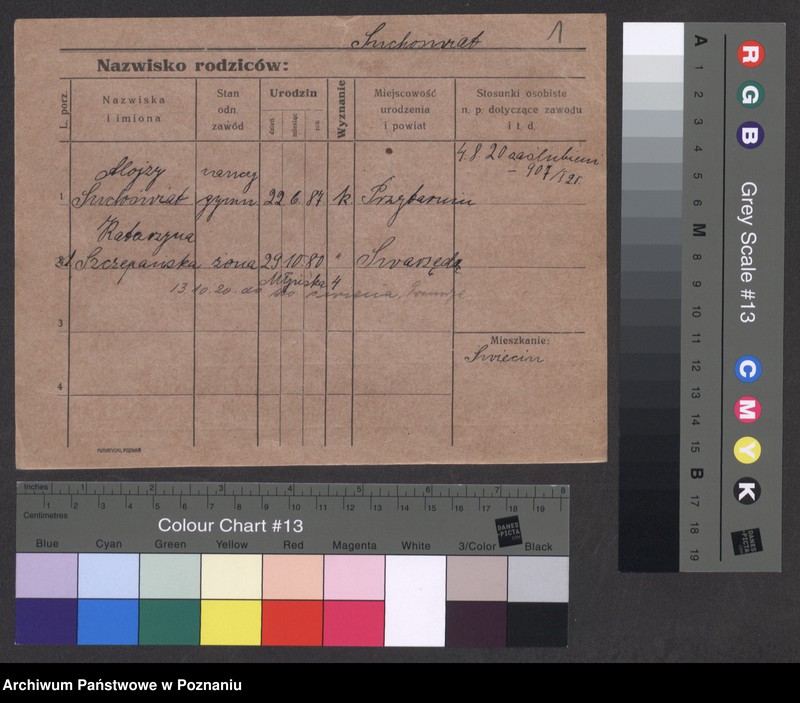 Suchoswiat 1
Nazwisko rodziców:
L. porz.
Nazwiska
i imiona
Stan
odn.
zawód
Urodzin
dzień
miesiąc
rok
Wyznanie
Miejscowość
urodzenia
i powiat
Stosunki osobiste
n. p. dotyczące zawodu
i t. d.
4.8.20 zaślubieni
– 907/I 21.
Alojzy
1 Suchoswiat gymn. 22 6. 87 k.
Katarzyna
Szczepańska żona 29 10 80 "
13.10.20 do
3
Mieszkanie:
4
PUTIATYCKI, POZNAŃ
A 1 2 3 4 5 6 M 8 9 10 11 12 13 14 15 B 17 18 19
R G B
Grey Scale #13
C M Y K
DANES
-PICTA
.COM
Inches 1 2 3 4 5 6 7 8
Centimetres 1 2 3 4 5 6 7 8 9 10 11 12 13 14 15 16 17 18 19
Colour Chart #13
DANES
-PICTA
.COM
Blue Cyan Green Yellow Red Magenta White 3/Color Black
Archiwum Państwowe w Poznaniu